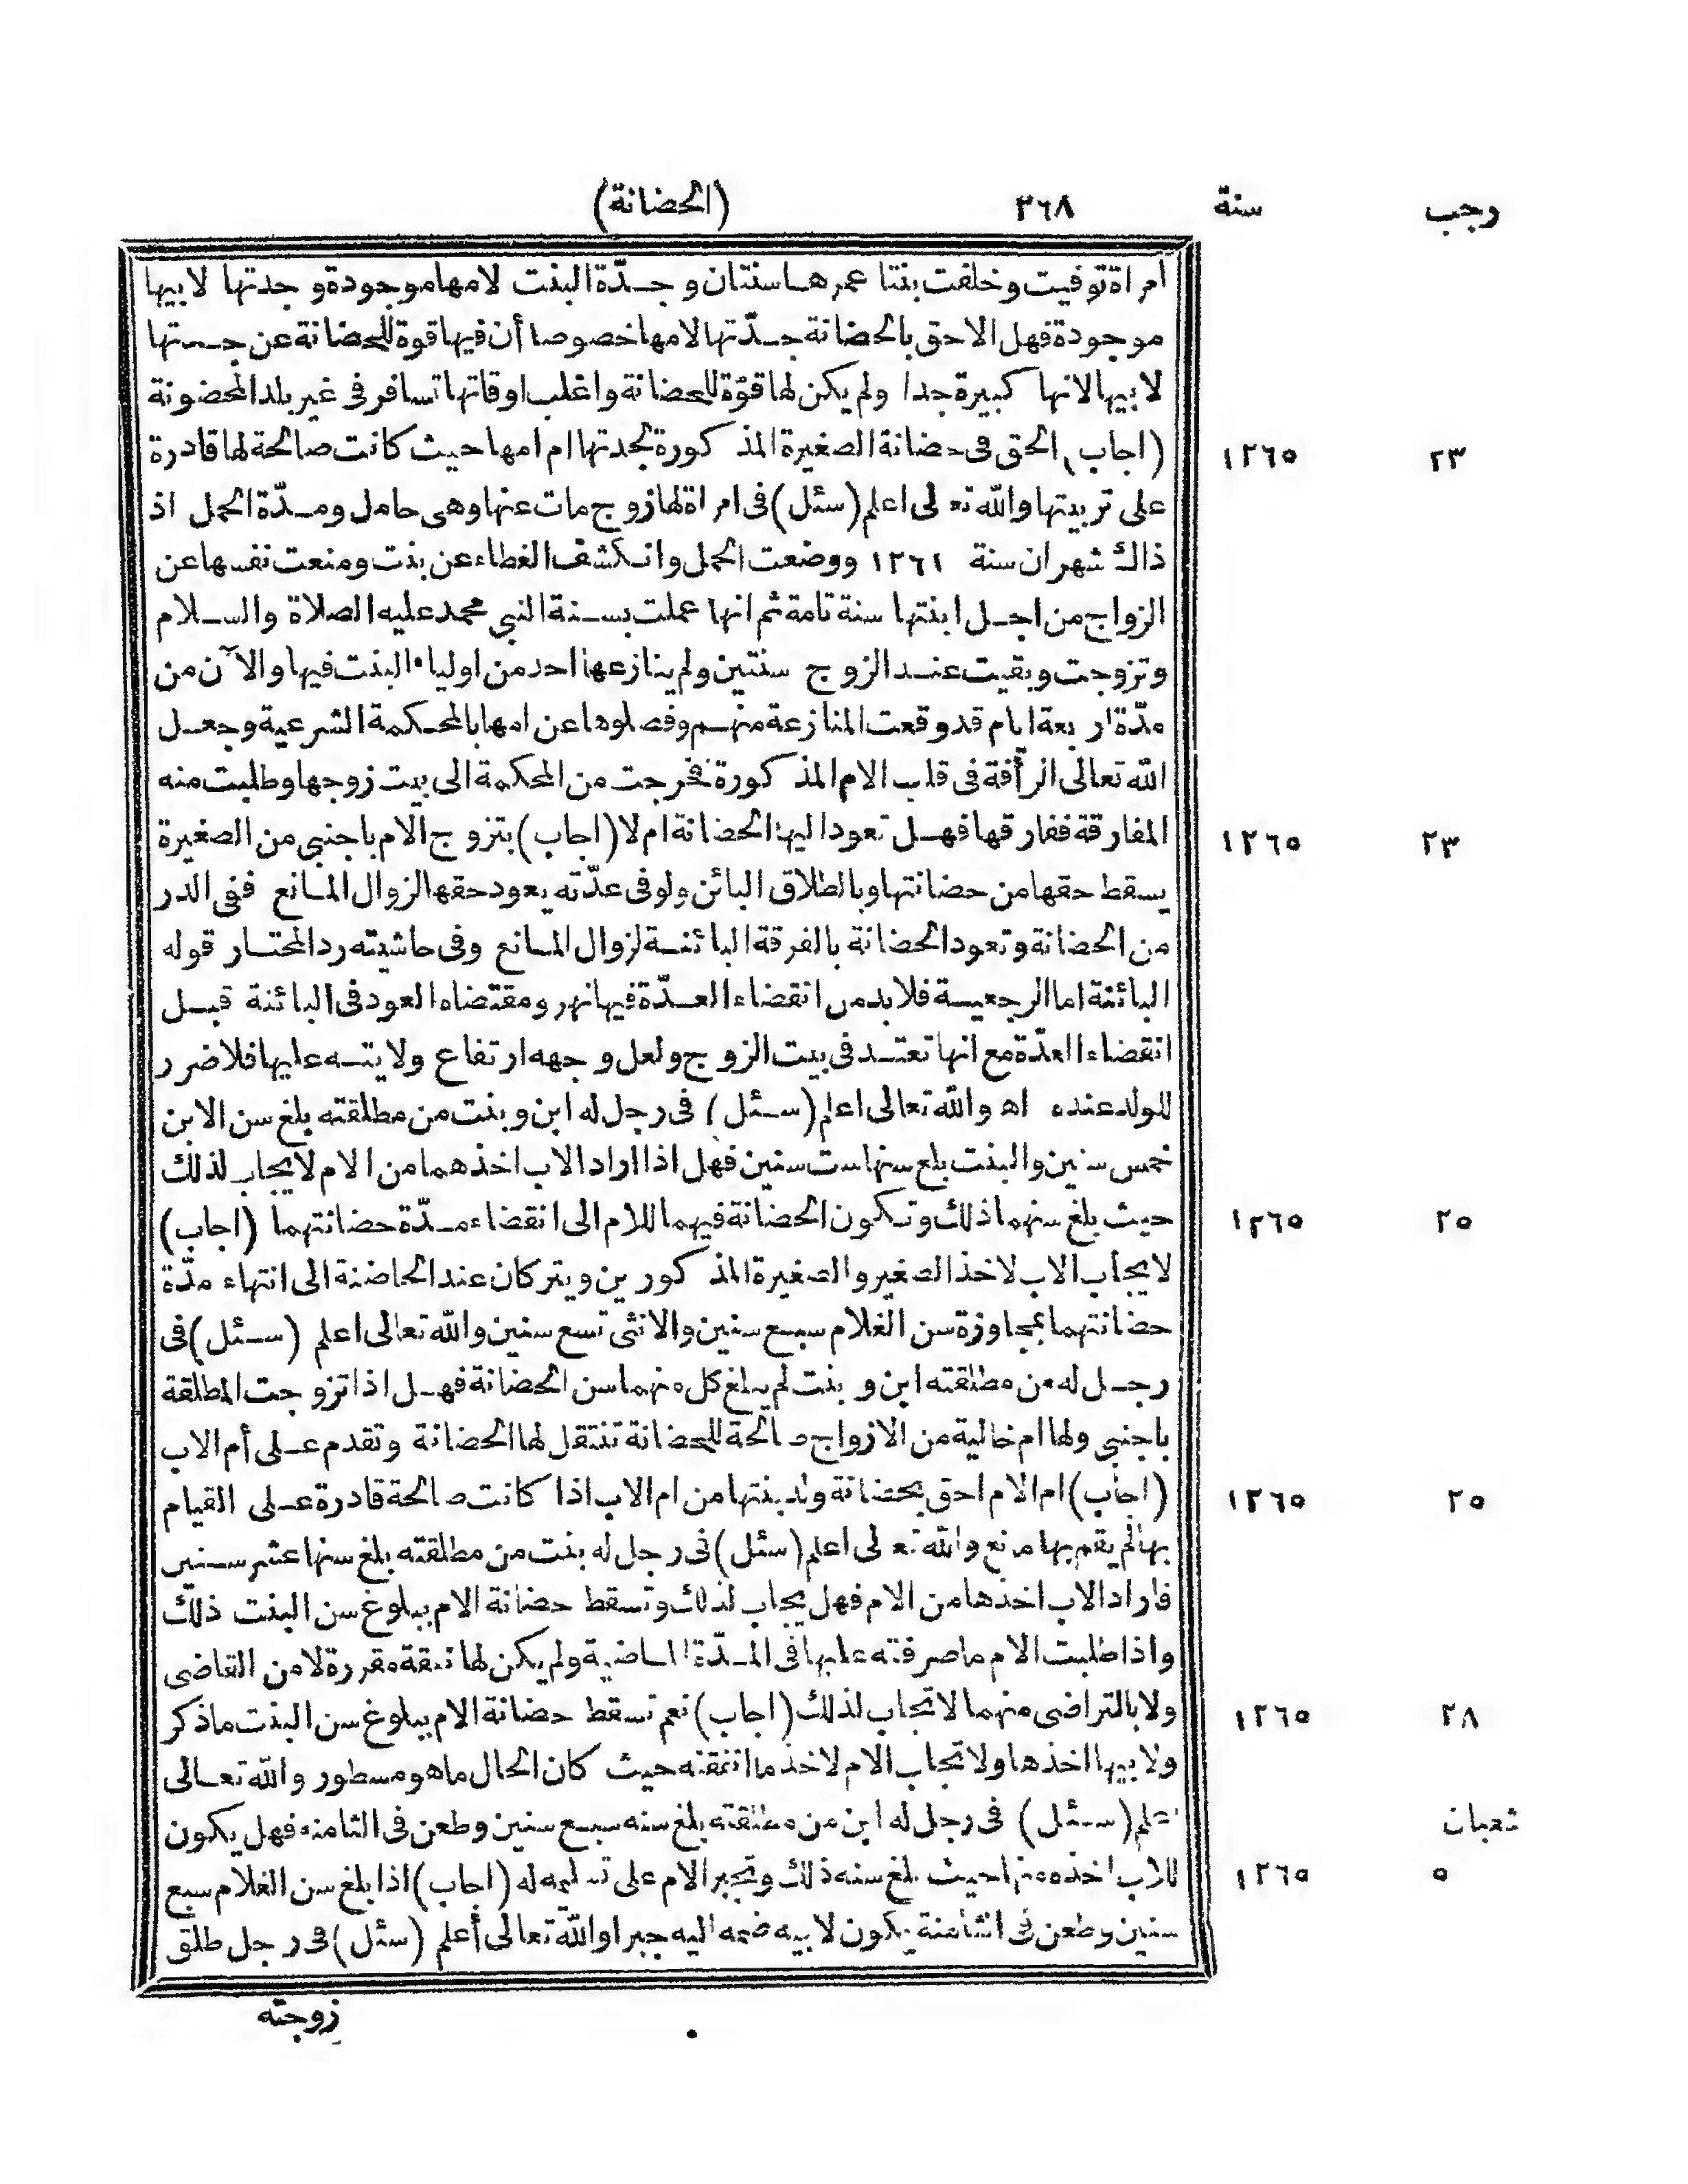 رجب سنة ٣٦٨ (الحضانة)
امراة توفيت وخلفت بنتا عمرها سنتان وجدّة البنت لامها موجودة وجدتها لابيها
موجودة فهل الاحق بالحضانة جدّتها لامها خصوصا أن فيها قوة للحضانة عن جدتها
لابيها لانها كبيرة جدا ولم يكن لها قوّة للحضانة واغلب اوقاتها تسافر فى غير بلد المحضونة
٢٣ ١٢٦٥ (اجاب) الحق فى حضانة الصغيرة المذكورة لجدتها ام امها حيث كانت صالحة لها قادرة
على تربيتها والله تعالى اعلم (سئل) فى امراة لها زوج مات عنها وهى حامل ومدّة الحمل اذ
ذاك شهران سنة ١٢٦١ ووضعت الحمل وانكشف الغطاء عن بنت ومنعت نفسها عن
الزواج من اجل ابنتها سنة تامة ثم انها عملت بسنة النبي محمد عليه الصلاة والسلام
وتزوجت وبقيت عند الزوج سنتين ولم ينازعها احد من اولياء البنت فيها والآن من
مدّة اربعة ايام قد وقعت المنازعة منهم وفصلوها عن امها بالمحكمة الشرعية وجعل
الله تعالى الرأفة فى قلب الام المذكورة فخرجت من المحكمة الى بيت زوجها وطلبت منه
٢٣ ١٢٦٥ المفارقة ففارقها فهل تعود اليها الحضانة ام لا (اجاب) بتزوج الام باجنبي من الصغيرة
يسقط حقها من حضانتها وبالطلاق البائن ولو فى عدّته يعود حقها لزوال المانع ففى الدر
من الحضانة وتعود الحضانة بالفرقة البائنة لزوال المانع وفى حاشيته رد المحتار قوله
البائنة اما الرجعية فلا بد من انقضاء العدّة فيها نهر ومقتضاه العود فى البائنة قبل
انقضاء العدّة مع انها تعتد فى بيت الزوج ولعل وجهه ارتفاع ولايته عليها فلا ضرر
للولد عنده اه والله تعالى اعلم (سئل) فى رجل له ابن وبنت من مطلقته بلغ سن الابن
خمس سنين والبنت بلغ سنها ست سنين فهل اذا اراد الاب اخذهما من الام لا يجاب لذلك
٢٥ ١٢٦٥ حيث بلغ سنهما ذلك وتكون الحضانة فيهما للام الى انقضاء مدّة حضانتهما (اجاب)
لا يجاب الاب لاخذ الصغير والصغيرة المذكورين ويتركان عند الحاضنة الى انتهاء مدّة
حضانتهما بمجاوزة سن الغلام سبع سنين والانثى تسع سنين والله تعالى اعلم (سئل) فى
رجل له من مطلقته ابن وبنت لم يبلغ كل منهما سن الحضانة فهل اذا تزوجت المطلقة
باجنبي ولها ام خالية من الازواج صالحة للحضانة تنتقل لها الحضانة وتقدم على أم الاب
٢٥ ١٢٦٥ (اجاب) ام الام احق بحضانة ولد بنتها من ام الاب اذا كانت صالحة قادرة على القيام
بها لم يقم بها مانع والله تعالى اعلم (سئل) فى رجل له بنت من مطلقته بلغ سنها عشر سنين
فاراد الاب اخذها من الام فهل يجاب لذلك وتسقط حضانة الام ببلوغ سن البنت ذلك
واذا طلبت الام ما صرفته عليها فى المدّة الماضية ولم يكن لها نفقة مقررة لا من القاضى
٢٨ ١٢٦٥ ولا بالتراضى منهما لا تجاب لذلك (اجاب) نعم تسقط حضانة الام ببلوغ سن البنت ما ذكر
ولابيها اخذها ولا تجاب الام لاخذ ما انفقته حيث كان الحال ما هو مسطور والله تعالى
شعبان اعلم (سئل) فى رجل له ابن من مطلقته بلغ سنه سبع سنين وطعن فى الثامنه فهل يكون
٥ ١٢٦٥ للاب اخذه منها حيث بلغ سنه ذلك وتجبر الام على تسليمه له (اجاب) اذا بلغ سن الغلام سبع
سنين وطعن فى الثامنة يكون لابيه ضمه اليه جبرا والله تعالى أعلم (سئل) فى رجل طلق
زوجته